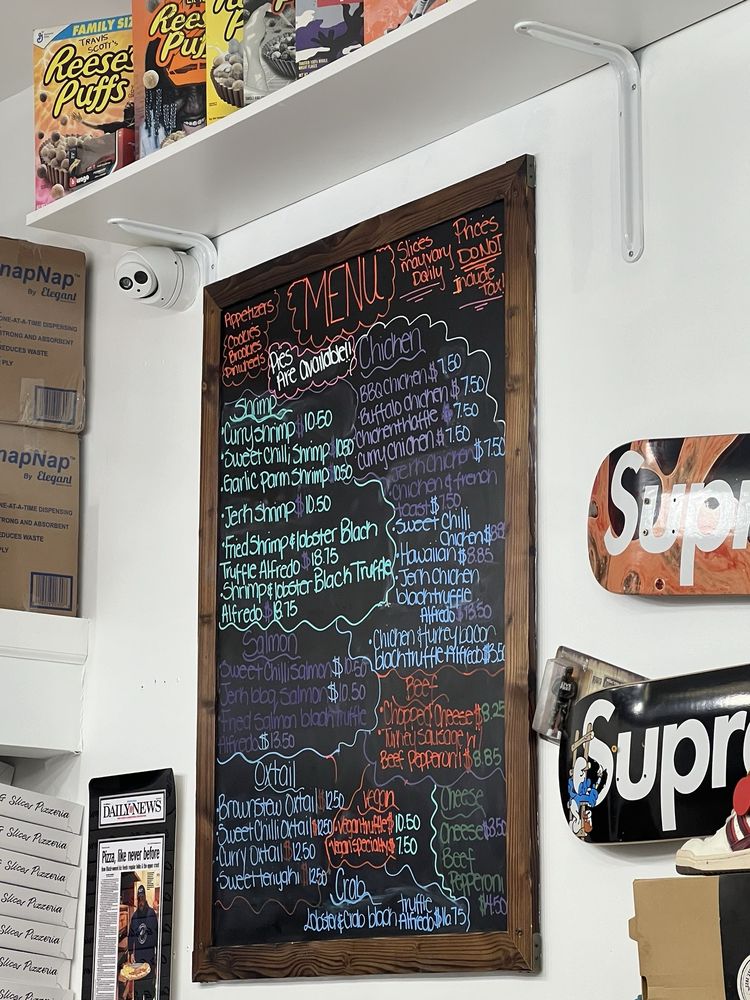 FAMILY SIZE
TRAVIS
SCOTT'S
Reese's
Puffs
Reese's
Puffs
MENU
Slices
may vary
Daily
Prices
DO NOT
Include
Tax!
Appetizers
Cookies
Brookies
Pinwheels
Pies
Are Available!!
Shrimp
•Curry Shrimp $10.50
•Sweet Chili Shrimp $10.50
•Garlic Parm Shrimp 10.50
•Jerk Shrimp $10.50
•Fried Shrimp & lobster Black
Truffle Alfredo $18.75
•Shrimp & lobster Black Truffle
Alfredo $18.75
Chicken
BBQ chicken $7.50
•Buffalo chicken $7.50
Chicken & Waffle $7.50
Curry chicken $7.50
Jerk chicken $7.50
chicken & french
toast $7.50
•Sweet Chili
Chicken
•Hawaiian $8.85
•Jerk chicken
black truffle
Alfredo $13.50
•Chicken & turkey bacon
black truffle Alfredo
Salmon
Sweet Chili Salmon $10.50
Jerk bbq Salmon $10.50
Fried Salmon black truffle
Alfredo $13.50
Beef
•Chopped Cheese $8.25
•Turkey Sausage n'
Beef Pepperoni $8.85
Oxtail
Brown Stew Oxtail $12.50
Sweet Chili Oxtail $12.50
•Curry Oxtail $12.50
•Sweet Teriyaki $12.50
Vegan
•Vegan truffle $10.50
•Vegan specialty $7.50
Cheese
Cheese $3.50
Beef
Pepperoni
$4.50
Crab
Lobster & Crab black truffle
Alfredo $16.75
napNap™
By Elegant
ONE-AT-A-TIME DISPENSING
STRONG AND ABSORBENT
REDUCES WASTE
PLY
napNap™
By Elegant
ONE-AT-A-TIME DISPENSING
STRONG AND ABSORBENT
REDUCES WASTE
PLY
Supr
Supr
DAILY NEWS
Pizza, like never before
Slicer Pizzeria
Slicer Pizzeria
Slicer Pizzeria
Slicer Pizzeria
Slicer Pizzeria
Slicer Pizzeria